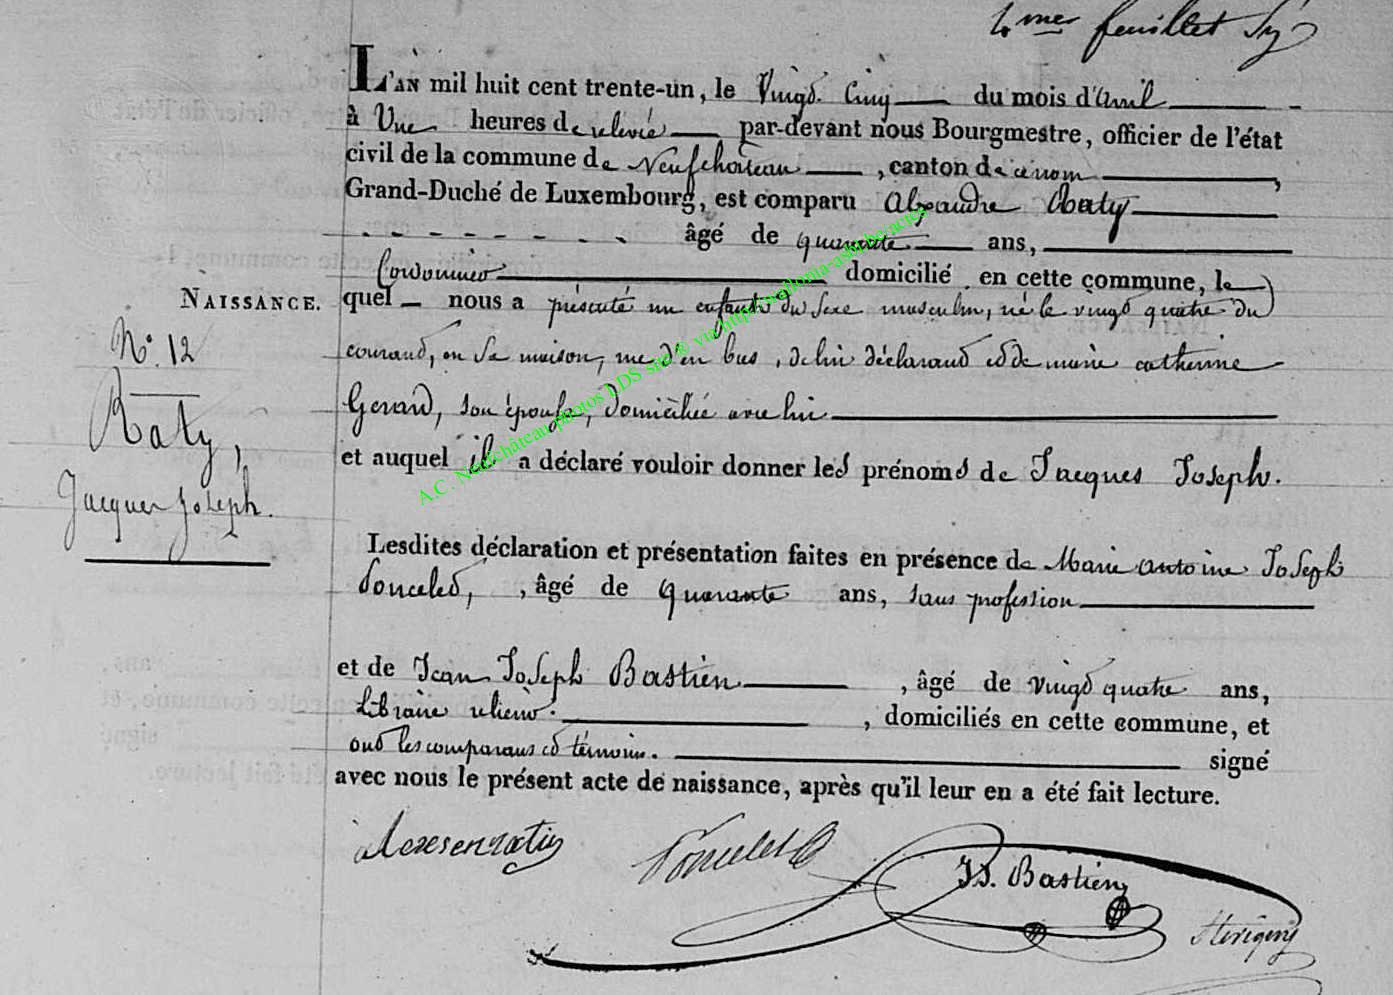 4mer feuillet
L'AN mil huit cent trente-un, le Vingt Cinq du mois d'avril
à Une heures de relevée par-devant nous Bourgmestre, officier de l'état
civil de la commune de Neufchateau, canton de ce nom,
Grand-Duché de Luxembourg, est comparu Alexandre Raty
- - - - - - - - âgé de quarante ans,
Cordonnier domicilié en cette commune, le
NAISSANCE.
quel nous a présenté un enfant du Sexe masculin, né le vingt quatre du
N.° 12
courant, en Sa maison, rue d'en bas, de lui déclarant et de marie catherine
Raty,
Gerard, son épouse, domiciliée avec lui
et auquel il a déclaré vouloir donner les prénoms de Jacques Joseph.
Jacques Joseph.
Lesdites déclaration et présentation faites en présence de Marie antoine Joseph
Poncelet, , âgé de quarante ans, sans profession
et de Jean Joseph Bastien , âgé de vingt quatre ans,
Libraire relieur. , domiciliés en cette commune, et
ont les comparans et témoins. signé
avec nous le présent acte de naissance, après qu'il leur en a été fait lecture.
Poncelet
JJ. Bastien
A.C. Neufchâteau photos LDS site © via http://wallonia-asbl.be/actes